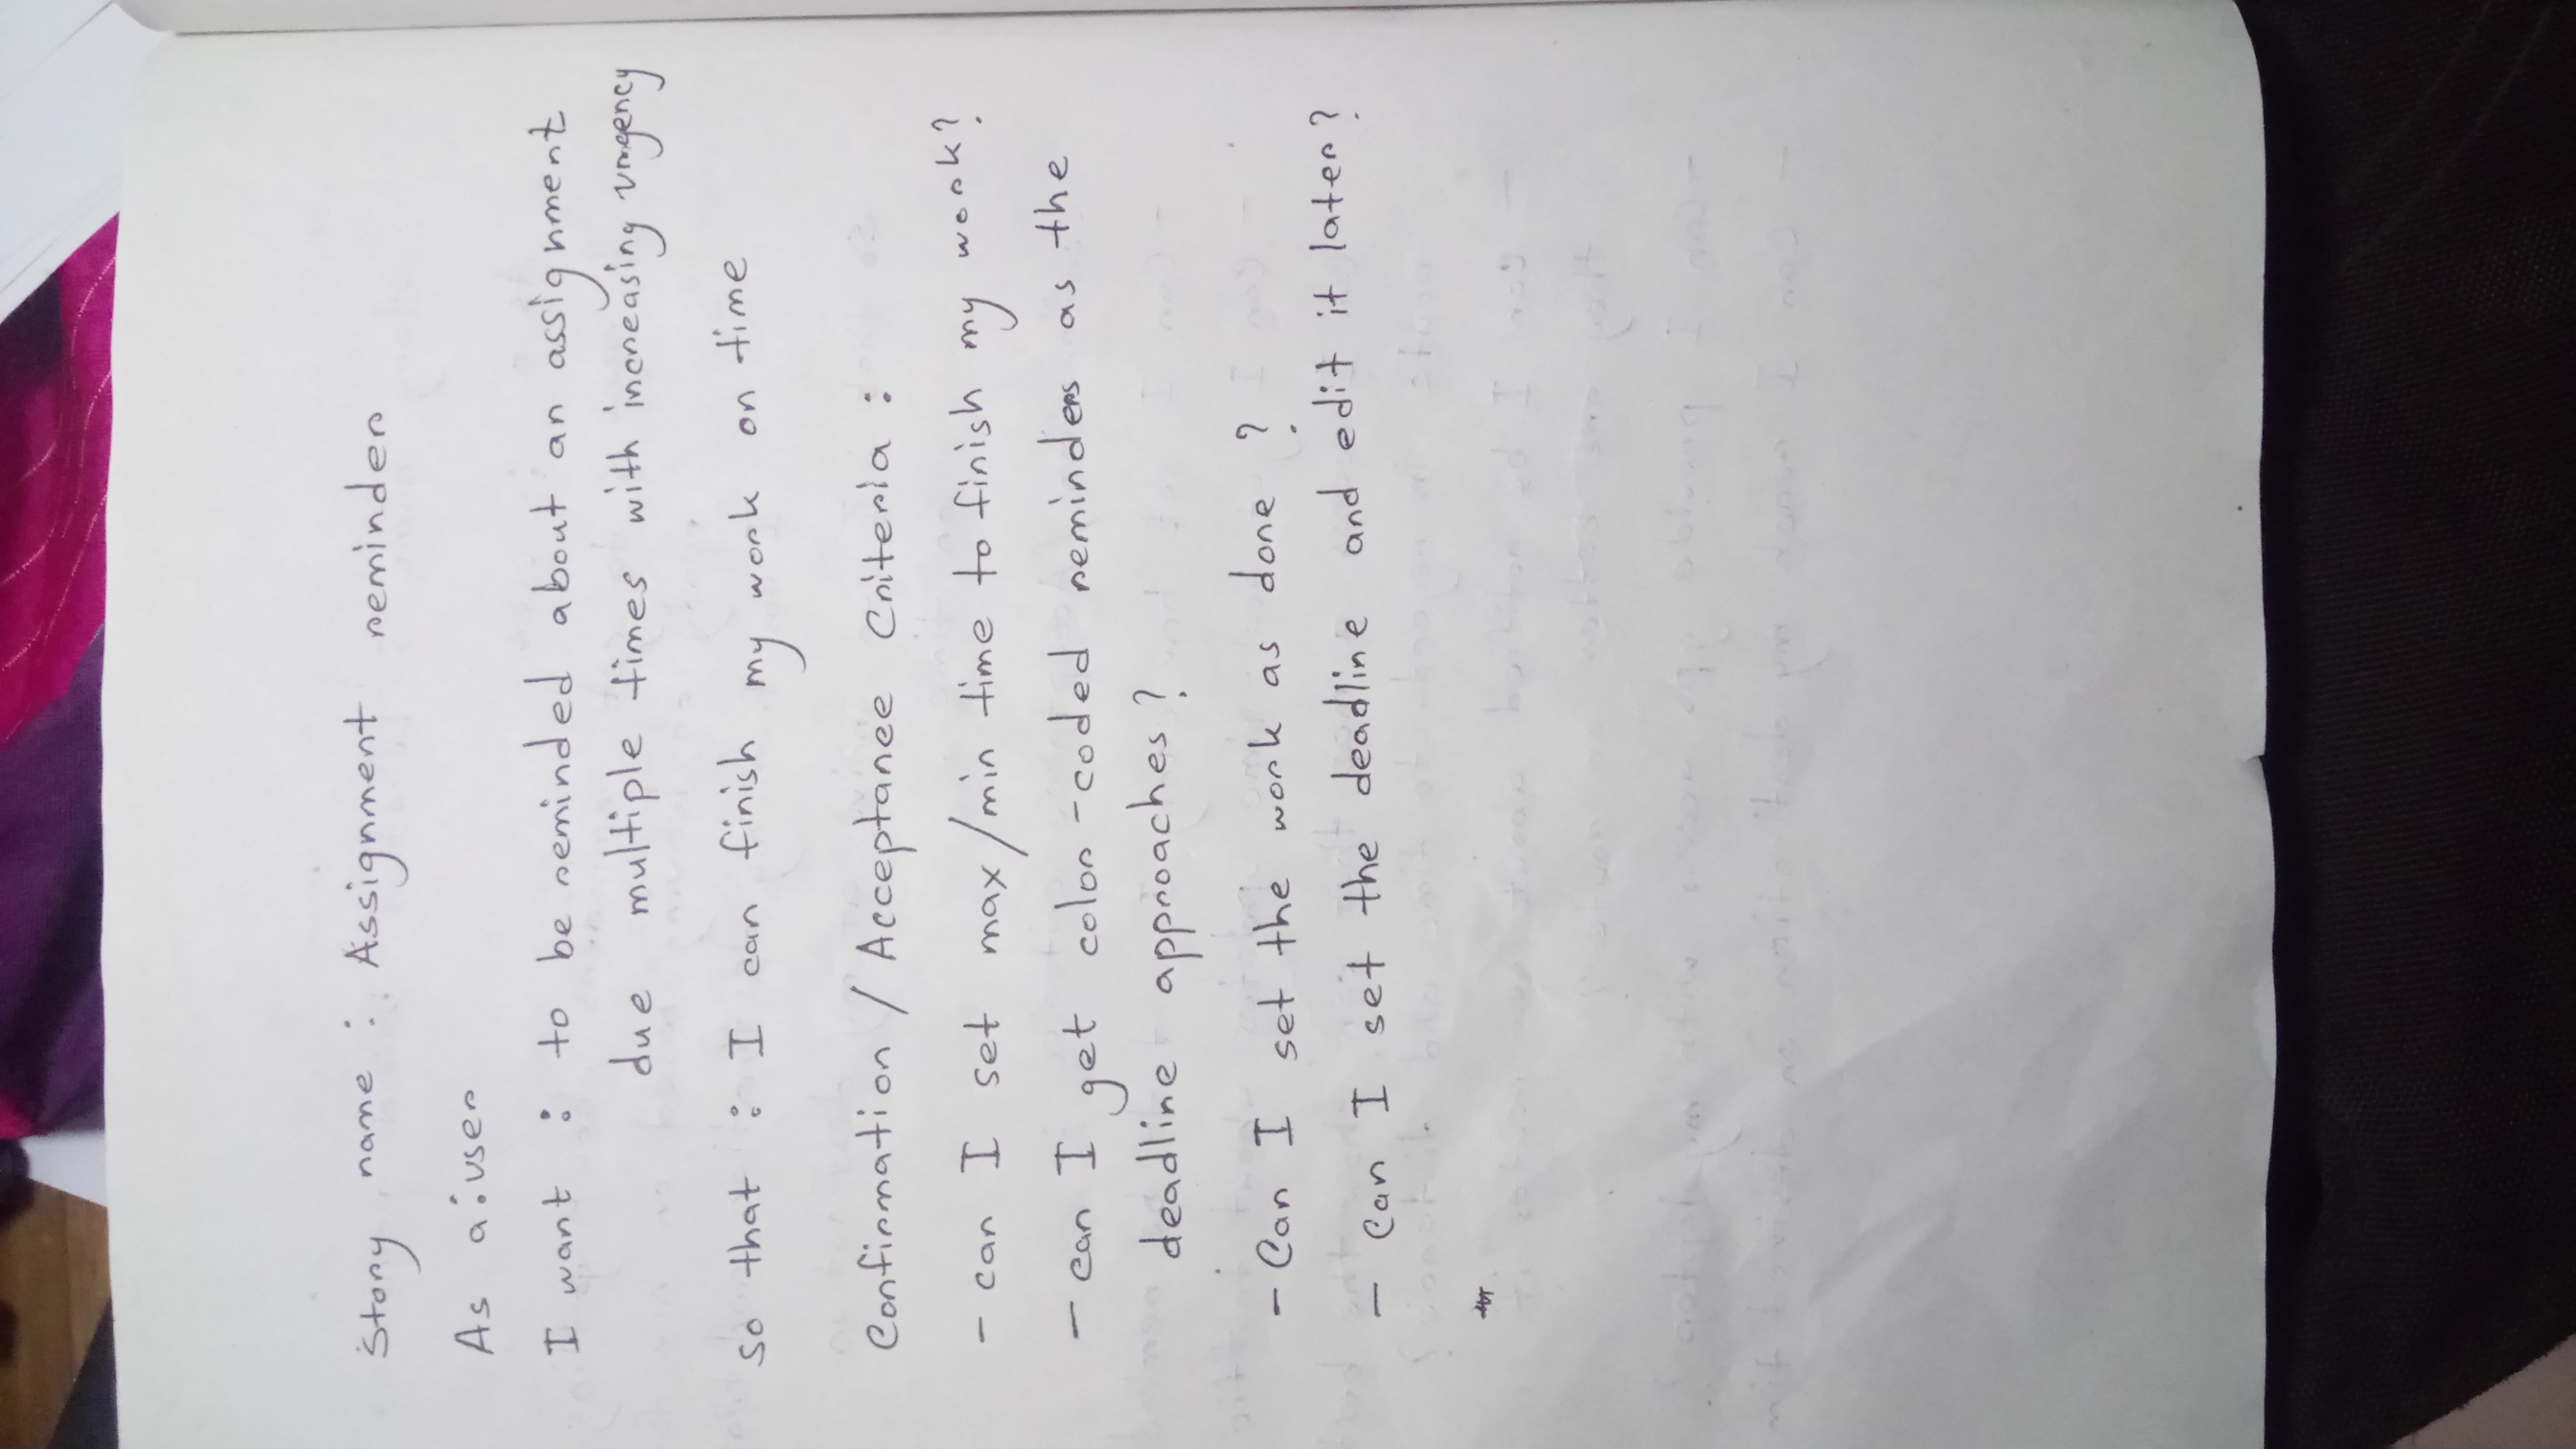 Story name : Assignment reminder
As a : user
I want : to be reminded about an assignment
due multiple times with increasing urgency
so that : I can finish my work on time
Confirmation / Acceptance Criteria :
- can I set max/min time to finish my work?
- can I get color-coded reminders as the
deadline approaches?
- Can I set the work as done ?
- Can I set the deadline and edit it later?